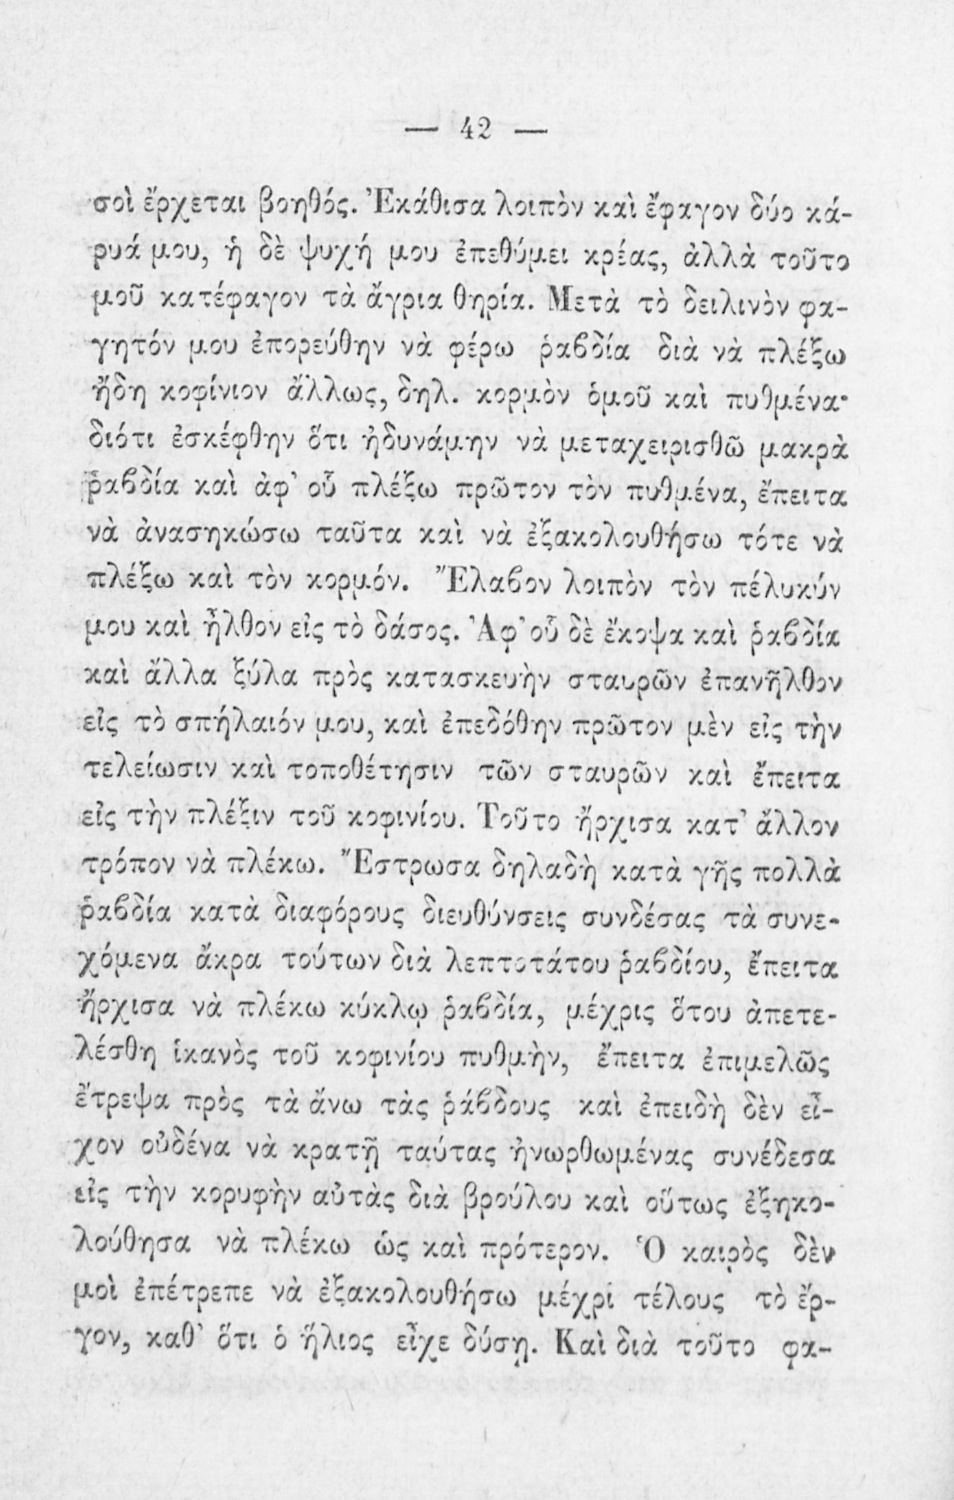 — 42 —
σοὶ ἔρχεται βοηθός. Ἐκάθισα λοιπὸν καὶ ἔφαγον δύο κά-
ρυά μου, ἡ δὲ ψυχή μου ἐπεθύμει κρέας, ἀλλὰ τοῦτο
μοῦ κατέφαγον τὰ ἄγρια θηρία. Μετὰ τὸ δειλινὸν φα-
γητόν μου ἐπορεύθην νὰ φέρω ῥαβδία διὰ νὰ πλέξω
ἤδη κοφίνιον ἄλλως, δηλ. κορμὸν ὁμοῦ καὶ πυθμένα·
διότι ἐσκέφθην ὅτι ἠδυνάμην νὰ μεταχειρισθῶ μακρὰ
ῥαβδία καὶ ἀφ' οὗ πλέξω πρῶτον τὸν πυθμένα, ἔπειτα
νὰ ἀνασηκώσω ταῦτα καὶ νὰ ἐξακολουθήσω τότε νὰ
πλέξω καὶ τὸν κορμόν. Ἔλαβον λοιπὸν τὸν πέλυκύν
μου καὶ ἦλθον εἰς τὸ δάσος. Ἀφ' οὗ δὲ ἔκοψα καὶ ῥαβδία
καὶ ἄλλα ξύλα πρὸς κατασκευὴν σταυρῶν ἐπανῆλθον
εἰς τὸ σπήλαιόν μου, καὶ ἐπεδόθην πρῶτον μὲν εἰς τὴν
τελείωσιν καὶ τοποθέτησιν τῶν σταυρῶν καὶ ἔπειτα
εἰς τὴν πλέξιν τοῦ κοφινίου. Τοῦτο ἤρχισα κατ' ἄλλον
τρόπον νὰ πλέκω. Ἔστρωσα δηλαδὴ κατὰ γῆς πολλὰ
ῥαβδία κατὰ διαφόρους διευθύνσεις συνδέσας τὰ συνε-
χόμενα ἄκρα τούτων διὰ λεπτοτάτου ῥαβδίου, ἔπειτα
ἤρχισα νὰ πλέκω κύκλῳ ῥαβδία, μέχρις ὅτου ἀπετε-
λέσθη ἱκανὸς τοῦ κοφινίου πυθμὴν, ἔπειτα ἐπιμελῶς
ἔτρεψα πρὸς τὰ ἄνω τὰς ῥάβδους καὶ ἐπειδὴ δὲν εἶ-
χον οὐδένα νὰ κρατῇ ταύτας ἠνωρθωμένας συνέδεσα
εἰς τὴν κορυφὴν αὐτὰς διὰ βρούλου καὶ οὕτως ἐξηκο-
λούθησα νὰ πλέκω ὡς καὶ πρότερον. Ὁ καιρὸς δὲν
μοὶ ἐπέτρεπε νὰ ἐξακολουθήσω μέχρι τέλους τὸ ἔρ-
γον, καθ' ὅτι ὁ ἥλιος εἶχε δύσῃ. Καὶ διὰ τοῦτο φα-